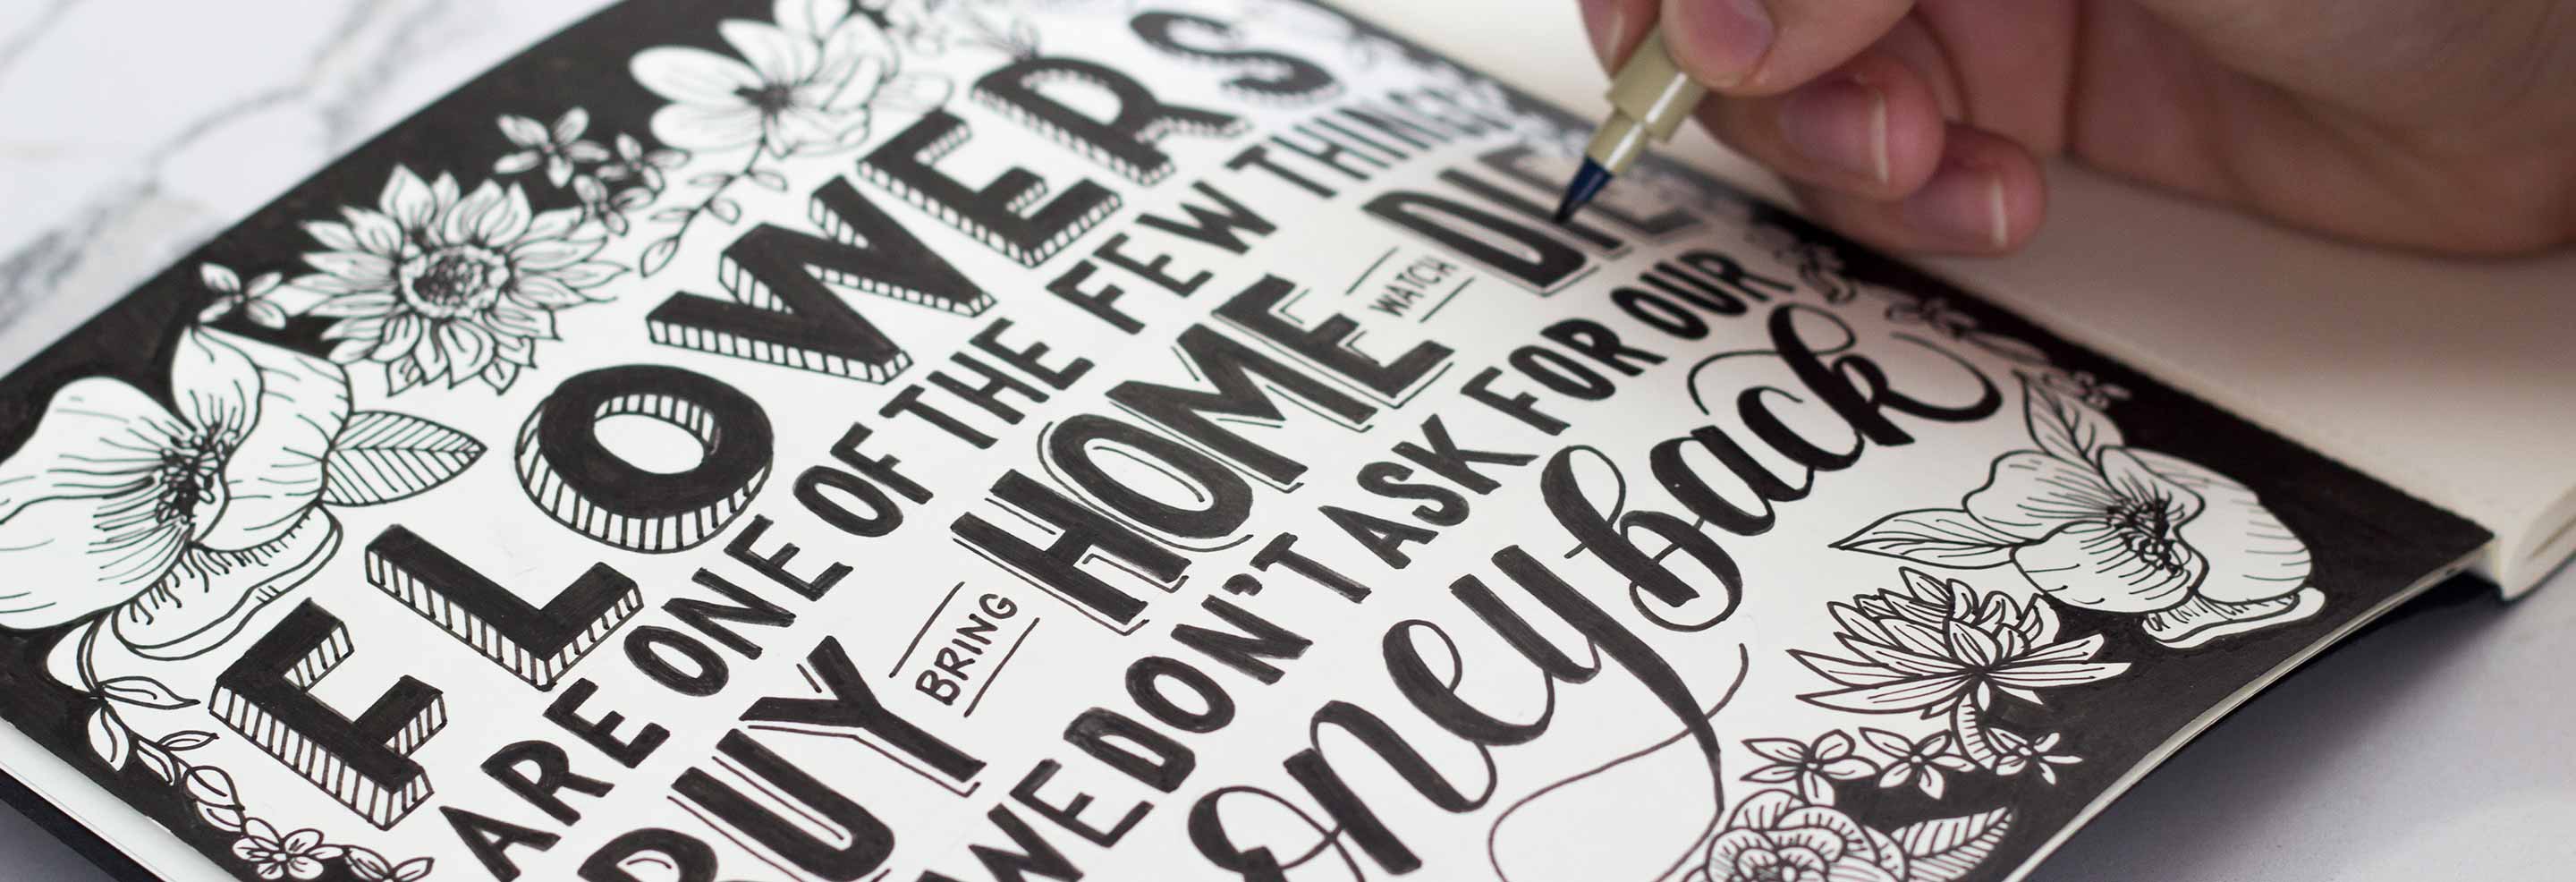 FLOWERS
ARE ONE OF THE FEW THINGS
BUY BRING HOME WATCH DIE
WE DON'T ASK FOR OUR
oney back